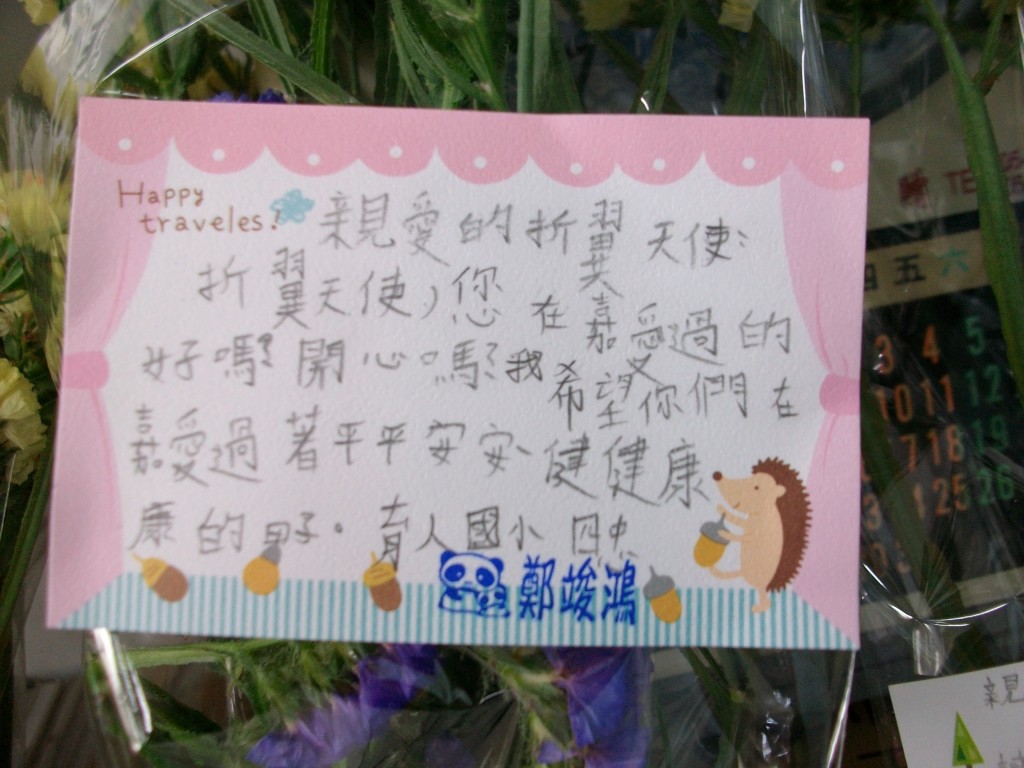 Happy
traveles!
親愛的折翼天使:
折翼天使,您在嘉愛過的
好嗎?開心嗎?我希望你們在
嘉愛過著平平安安、健健康
康的日子。育人國小 四忠
鄭竣鴻
TE
四五六
3 4 5
10 11 12
17 18 19
25 26
親